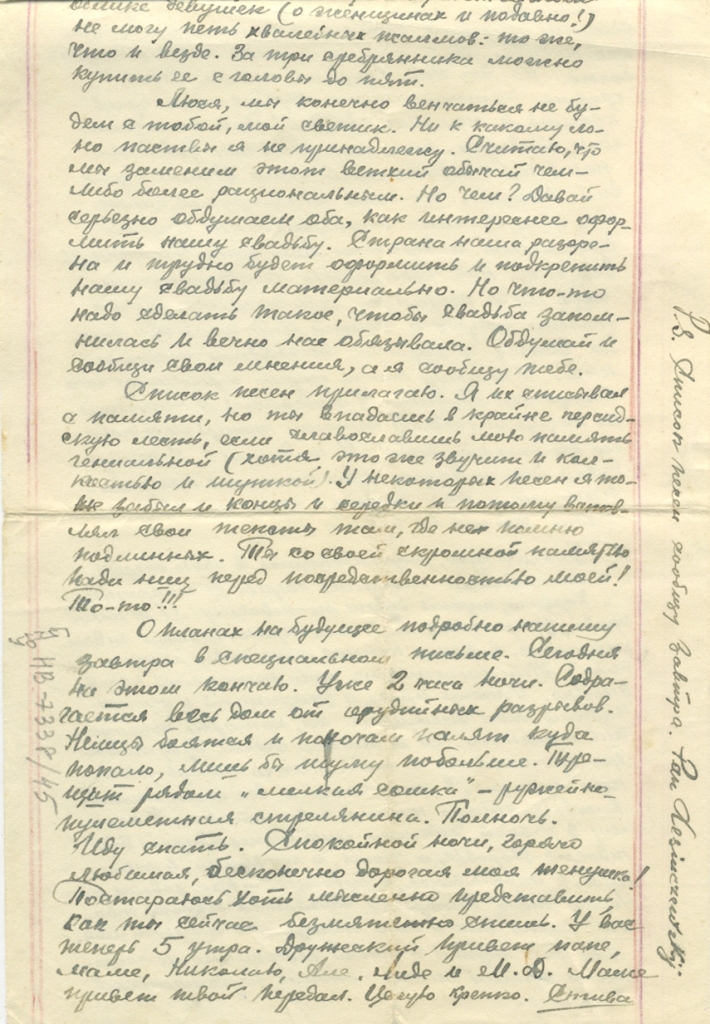 девушек (о женщинах и подавно!)
не могу петь хвалебных псалмов: то же,
что и везде. За три сребрянника можно
купить ее с головы до пят.
Люся, мы конечно венчаться не бу-
дем с тобой, мой светик. Ни к какому ло-
но паствы я не принадлежу. Считаю, что
мы заменим этот ветхий обычай чем-
либо более рациональным. Но чем? Давай
серьезно обдумаем оба, как интереснее офор-
мить нашу свадьбу. Страна наша разоре-
на и трудно будет оформить и подкрепить
нашу свадьбу материально. Но что-то
надо сделать такое, чтобы свадьба запом-
нилась и вечно нас обязывала. Обдумай и
сообщи свои мнения, а я сообщу тебе.
Список песен прилагаю. Я их списывал
с памяти, но ты впадаешь в крайне персид-
скую лесть, если славословишь мою память
гениальной (хотя это же звучит и кол-
костью и шуткой). У некоторых песен я то-
же забыл и концы и середки и потому встав-
лял свои тексты там, где не помню
подлинных. Ты со своей скромной памятью
пади ниц перед посредственностью моей!
То-то!!!
О планах на будущее подробно напишу
завтра в специальном письме. Сегодня
на этом кончаю. Уже 2 часа ночи. Содро-
гается весь дом от орудийных разрывов.
Немцы боятся и по ночам палят куда
попало, лишь бы шуму побольше. Тре-
щит рядом „мелкая сошка" – ружейно-
пулеметная стрелянина. Полночь.
Иду спать. Спокойной ночи, горячо
любимая, бесконечно дорогая моя женушка!
Постараюсь хоть мысленно представить,
как ты сейчас безмятежно спишь. У вас
теперь 5 утра. Дружеский привет папе,
маме, Николаю, Але, Лиде и М.Ф. Маме
привет твой передал. Целую крепко. Стива
P.S. Список песен сообщу завтра. Pan
НВ-7338/45